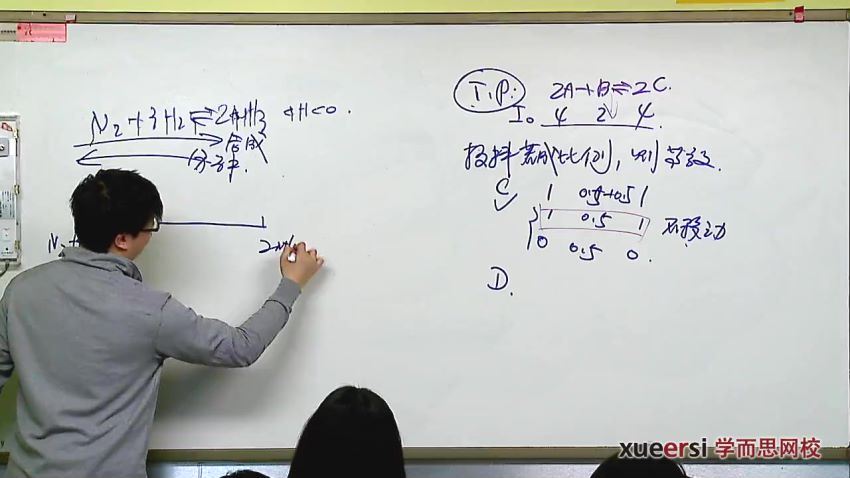 N₂+3H₂⇌2NH₃ ΔH<0.
合成
分解.
N₂+
2NH₃
T.P:
2A+B⇌2C.
I₀ 4 2 4
投料若成比例, 则等效.
C 1 0.5+0.5 1
✓ 1 0.5 1 不移动
0 0.5 0.
D.
xueersi 学而思网校